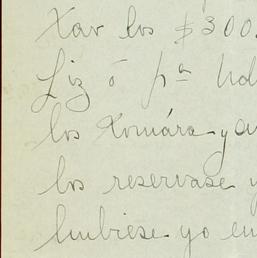 Xav los $300.
Liz ó pª
los Xomára y
los reservase y
hubiese yo en